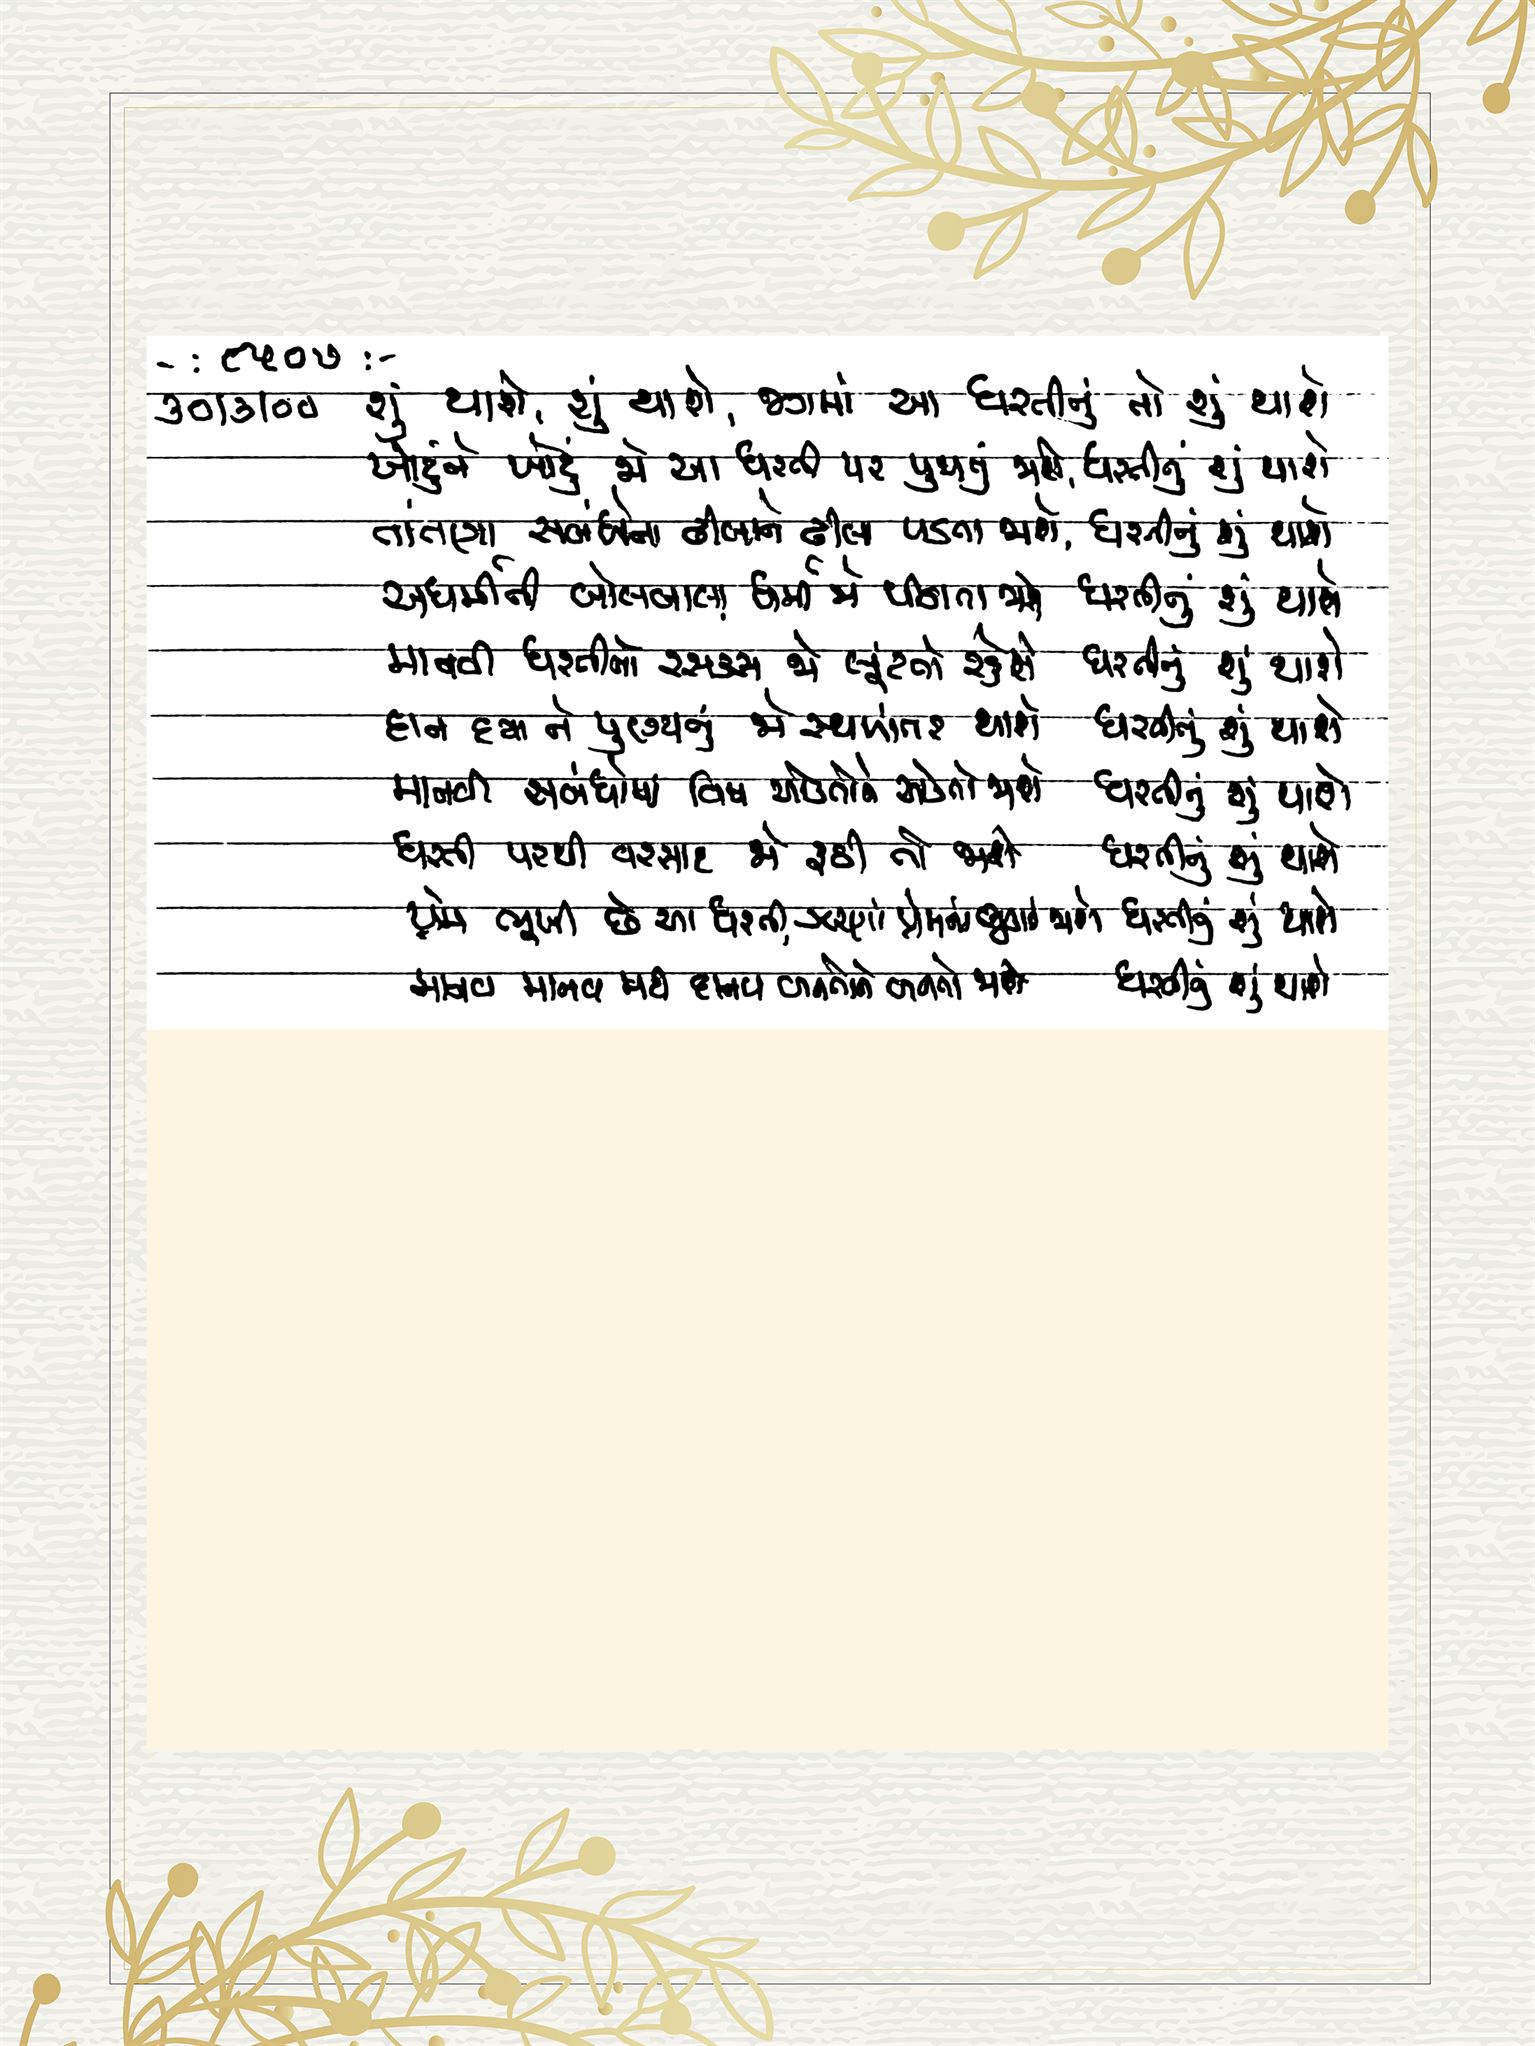 -: ૮૫૦૭ :-
૩૦/૩/૦૦ શું થાશે, શું થાશે, જગમાં આ ધરતીનું તો શું થાશે
ખોટુંને ખોટું જો આ ધરતી પર પુજાતું જાશે, ધરતીનું શું થાશે
તાંતણા સબંધોના ઢીલાને ઢીલા પડતા જાશે, ધરતીનું શું થાશે
અધર્મીની બોલબાલા, ધર્મી જો પીડાતા જાશે ધરતીનું શું થાશે
માનવી ધરતીનો રસકસ જો લૂંટતો રહેશે ધરતીનું શું થાશે
દાન દયા ને પુણ્યનું જો સ્થળાંતર થાશે ધરતીનું શું થાશે
માનવી સબંધોમાં વિષ રેડતોને રેડતો જાશે ધરતીનું શું થાશે
ધરતી પરથી વરસાદ જો રૂઠી તો જાશે ધરતીનું શું થાશે
પ્રેમ ભૂખી છે આ ધરતી, ઝરણાં પ્રેમના સુકાઈ જાશે ધરતીનું શું થાશે
માનવ માનવ મટી દાનવ બનતોને બનતો જાશે ધરતીનું શું થાશે